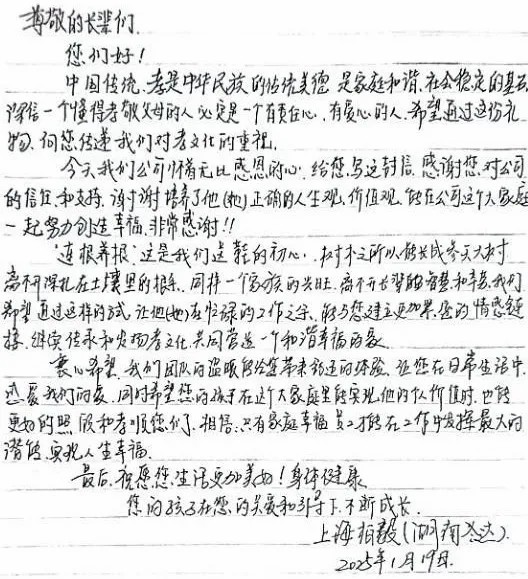 尊敬的长辈们
您们好!
中国传统,孝是中华民族的传统美德 是家庭和谐、社会稳定的基石
深信一个懂得孝敬父母的人 必定是一个有责任心,有爱心的人.希望通过这份礼
物,向您传递我们对孝文化的重视.
今天我们公司怀着无比感恩的心,给您写这封信,感谢您对公司
的信任和支持,谢谢培养了他(她)正确的人生观,价值观,能在公司这个大家庭
一起努力创造幸福,非常感谢!!
连根养根,这是我们送鞋的初心,树木之所以能长成参天大树
离不开深扎在土壤里的根系,同样一个家族的兴旺,离不开长辈的智慧和辛勤,我们
希望通过这样的方式,让他(她)在忙碌的工作之余,能与您建立更加紧密的情感链
接,继续传承和发扬孝文化,共同营造一个和谐幸福的家
衷心希望,我们团队的温暖能给您带来舒适的体验,让您在日常生活中
感受我们的爱,同时希望您的孩子在这个大家庭里能实现他的个人价值时,也能
更好的照顾和孝顺您们,相信,只有家庭幸福 员工才能在工作中发挥最大的
潜能,实现人生幸福.
最后,祝愿您,生活更加美好!身体健康
您的孩子在您的关爱和引导下,不断成长.
上海栢毅(湖南 达)
2025年1月19日.